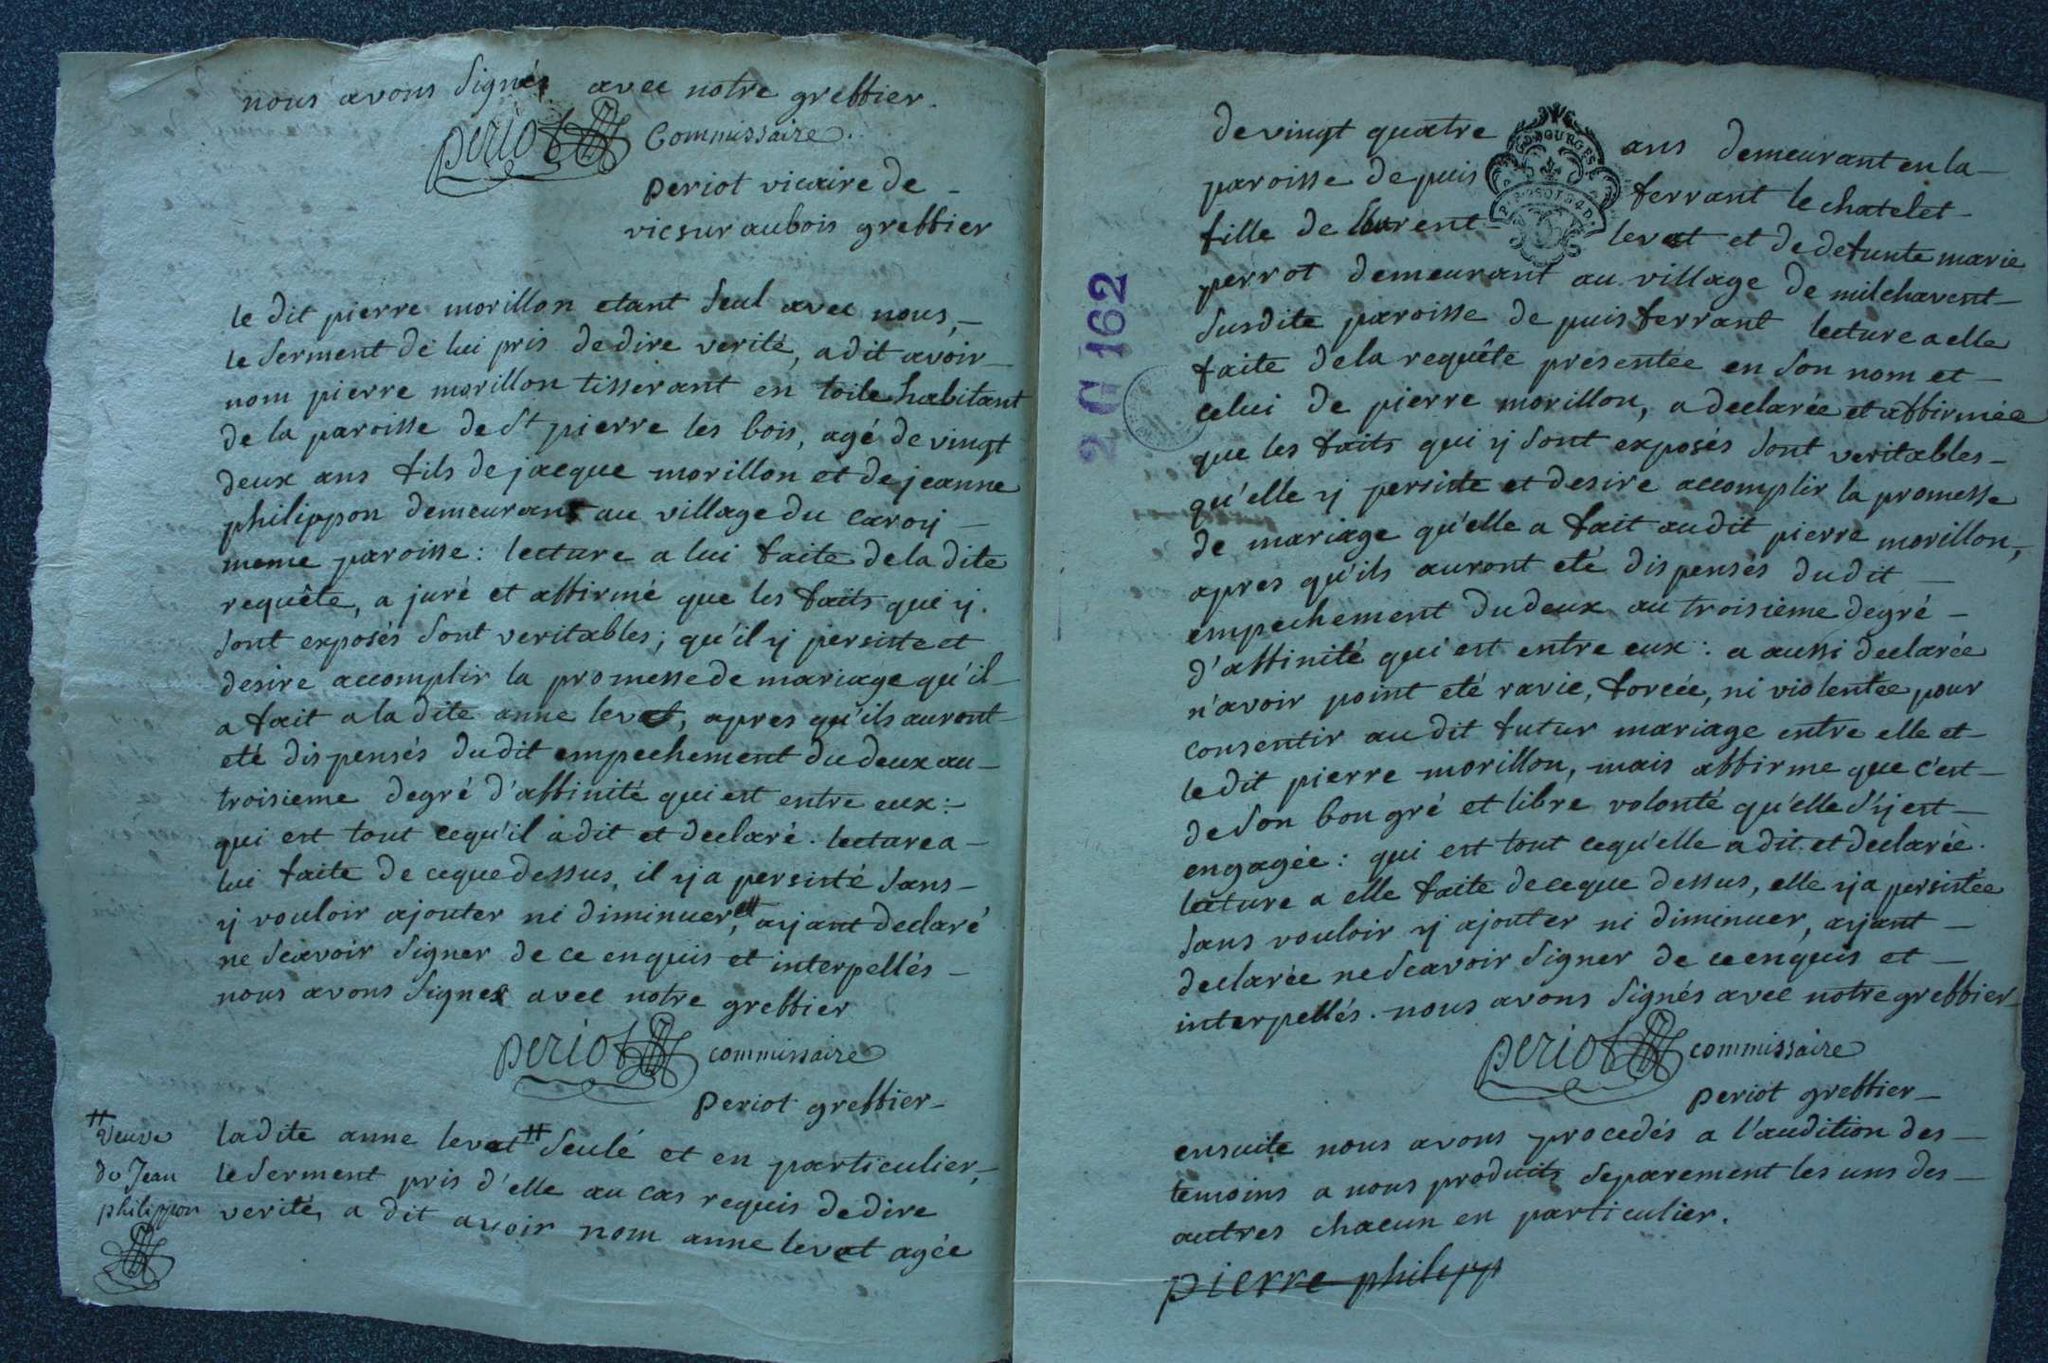 nous avons signés avec notre greffier.
periot Commissaire.
periot vicaire de
vic sur aubois greffier
le dit pierre morillon etant seul avec nous,
le serment de lui pris de dire verité, a dit avoir
nom pierre morillon tisserant en toile habitant
de la paroisse de St pierre les bois, agé de vingt
deux ans fils de jacque morillon et de jeanne
philippon demeurant au village du caroy
meme paroisse : lecture a lui faite de la dite
requête, a juré et affirmé que les faits qui y
sont exposés sont veritables ; qu'il y persiste et
desire accomplir la promesse de mariage qu'il
a fait a la dite anne levat, apres qu'ils auront
eté dispensés du dit empechement du deux au
troisieme degré d'affinité qui est entre eux :
qui est tout ce qu'il a dit et declaré. lecture a
lui faite de ce que dessus, il y a persisté sans
y vouloir ajouter ni diminuer, et ayant declaré
ne scavoir signer de ce enquis et interpellés
nous avons signés avec notre greffier
periot commissaire
periot greffier
# veuve
de Jean
philippon
la dite anne levat # seule et en particulier,
le serment pris d'elle au cas requis de dire
verité, a dit avoir nom anne levat agée
de vingt quatre ans demeurant en la
paroisse de puis ferrant le chatelet
fille de laurent levat et de defunte marie
perrot demeurant au village de milchavent
susdite paroisse de puis ferrant lecture a elle
faite de la requête presentée en son nom et
celui de pierre morillon, a declarée et affirmée
que les faits qui y sont exposés sont veritables
qu'elle y persiste et desire accomplir la promesse
de mariage qu'elle a fait au dit pierre morillon,
apres qu'ils auront eté dispensés du dit
empechement du deux au troisieme degré
d'affinité qui est entre eux : a aussi declarée
n'avoir point eté ravie, forcée, ni violentée pour
consentir au dit futur mariage entre elle et
le dit pierre morillon, mais affirme que c'est
de son bon gré et libre volonté qu'elle s'y est
engagée : qui est tout ce qu'elle a dit et declarée.
lecture a elle faite de ce que dessus, elle y a persistée
sans vouloir y ajouter ni diminuer, ayant
declarée ne scavoir signer de ce enquis et
interpellés. nous avons signés avec notre greffier
periot commissaire
periot greffier
ensuite nous avons procedés a l'audition des
temoins a nous produits separement les uns des
autres chacun en particulier.
pierre philipp
2 G 162
G. D BOURGES